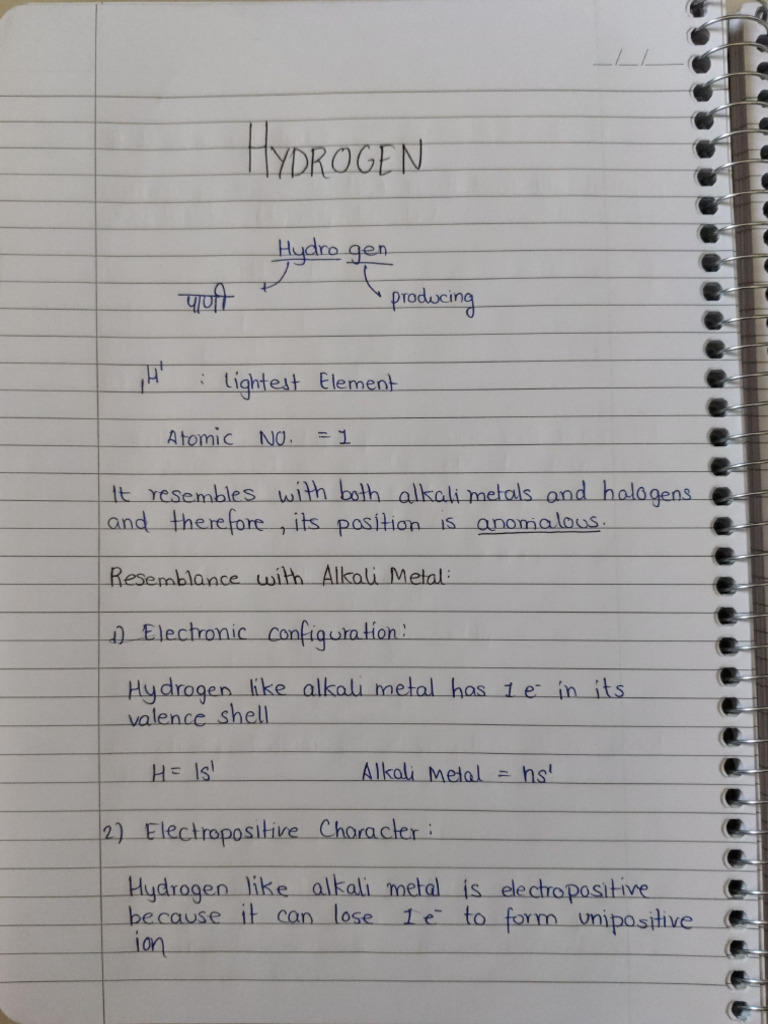 _/_/_
HYDROGEN
Hydrogen
पाणी producing
₁H¹ : lightest Element
Atomic NO. = 1
It resembles with both alkali metals and halogens
and therefore, its position is anomalous.
Resemblance with Alkali Metal:
1) Electronic configuration:
Hydrogen like alkali metal has 1 e⁻ in its
valence shell
H = 1s¹ Alkali Metal = ns¹
2) Electropositive Character:
Hydrogen like alkali metal is electropositive
because it can lose 1e⁻ to form unipositive
ion